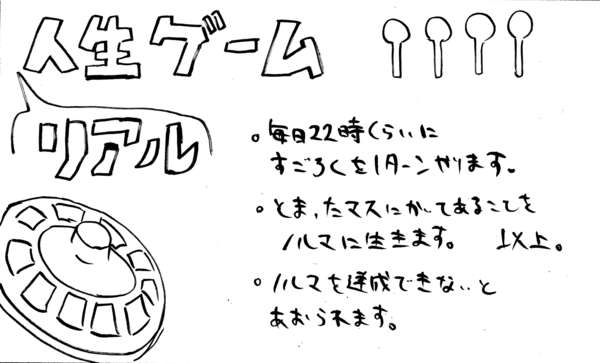 人生ゲーム
リアル
。毎日22時くらいに
すごろくを1ターンやります。
。とまったマスにかいてあることを
ノルマに生きます。 以上。
。ノルマを達成できないと
あおられます。